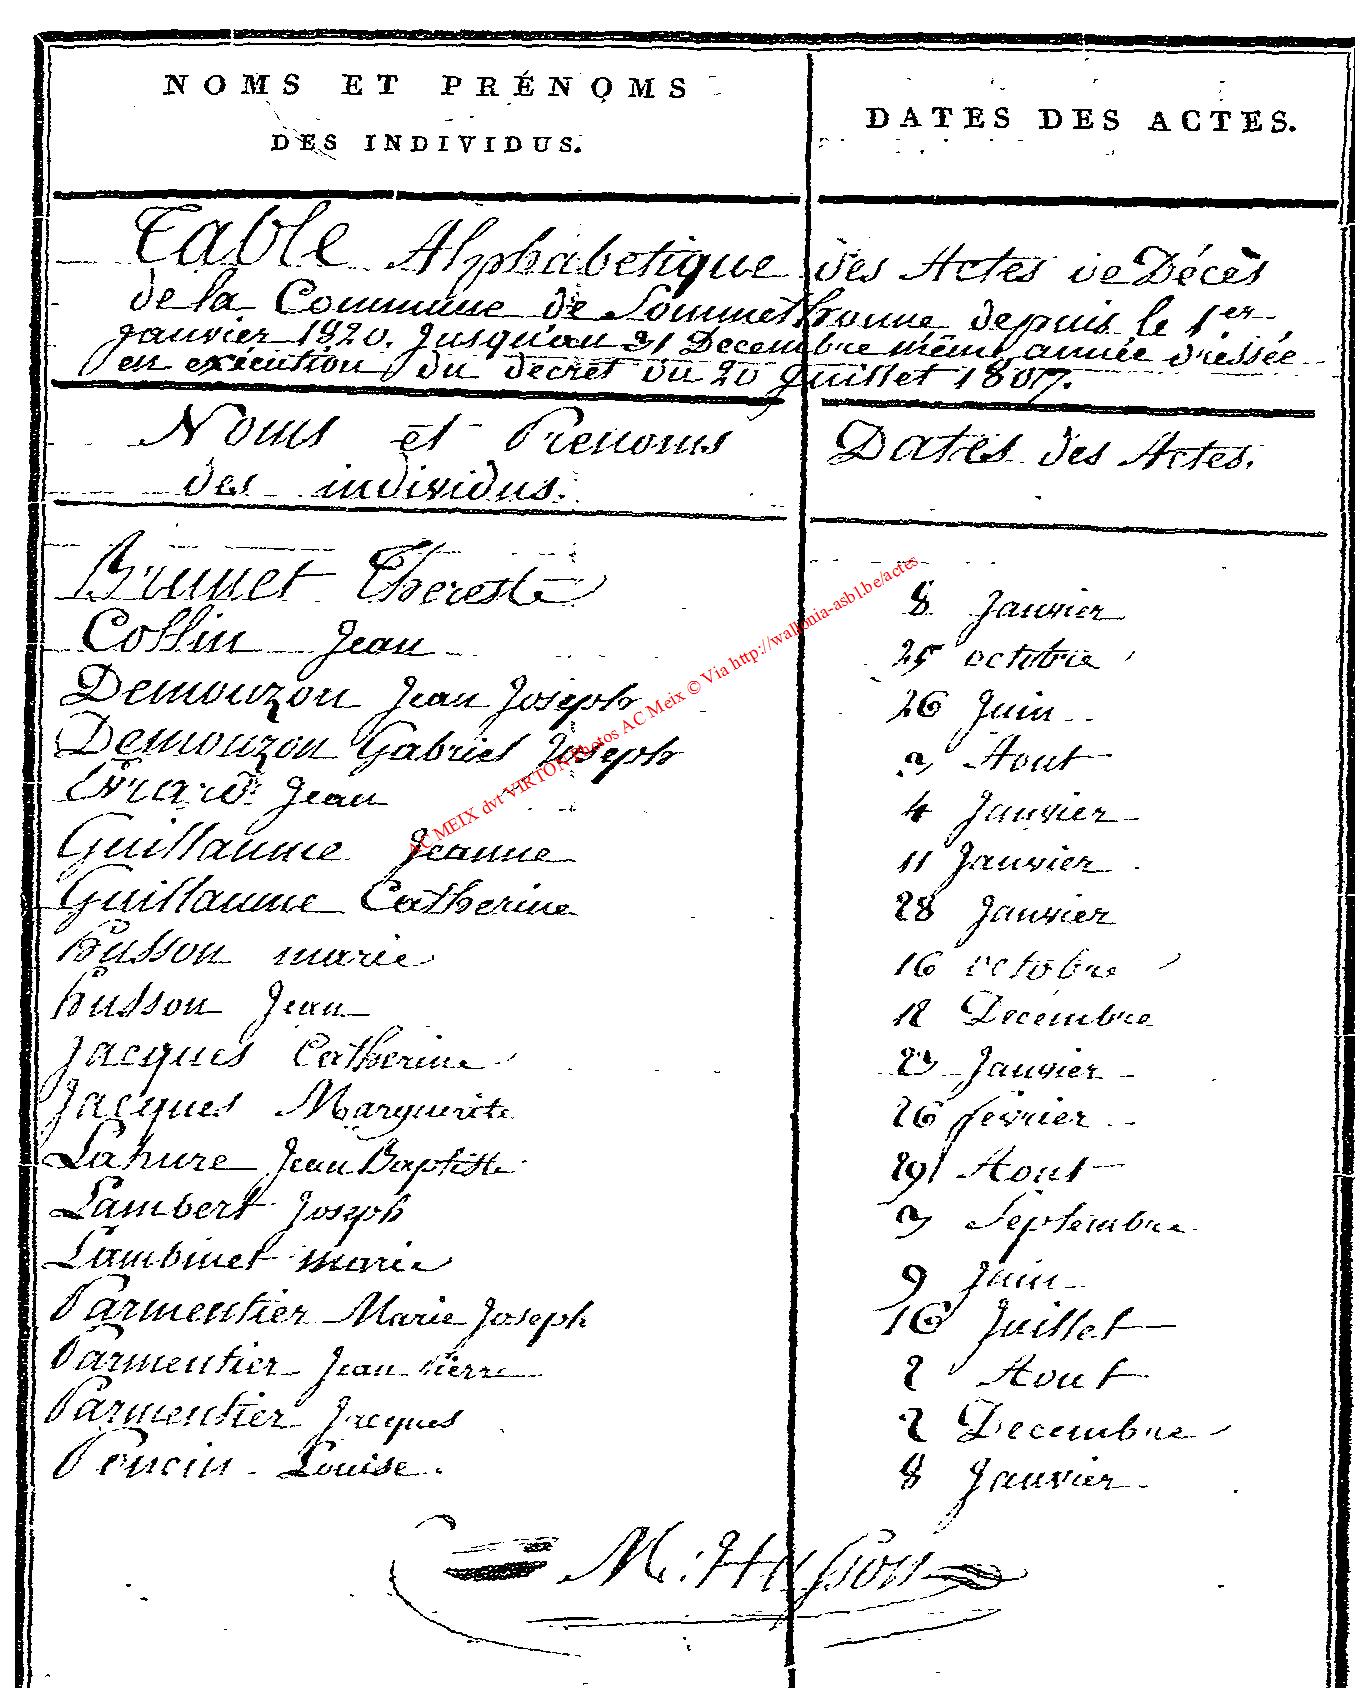 NOMS ET PRÉNOMS
DES INDIVIDUS.
DATES DES ACTES.
Table Alphabetique des Actes de Décès
de la Commune de Sommethonne depuis le 1er
Janvier 1820. Jusqu'au 31 Decembre même année dressée
en exécution du decret du 20 Juillet 1807.
Noms et Prenoms
des individus.
Dates des Actes.
Brunet Therese 8 Janvier
Collin Jean 25 octobre
Demouzon Jean Joseph 26 Juin
Demouzon Gabriel Joseph 3 Aout
Evrard Jean 4 Janvier
Guillaume Jeanne 11 Janvier
Guillaume Catherine 28 Janvier
husson marie 16 octobre
husson Jean 12 Decembre
Jacques Catherine 23 Janvier
Jacques Marguerite 26 février
Lahure Jean Baptiste 29 Aout
Lambert Joseph 3 Septembre
Lambinet marie 9 Juin
Parmentier Marie Joseph 16 Juillet
Parmentier Jean Pierre 2 Aout
Parmentier Jacques 2 Decembre
Poncin Louise. 8 Janvier
M. Husson
AC MEIX dvt VIRTON Photos AC Meix © Via http://wallonia-asbl.be/actes